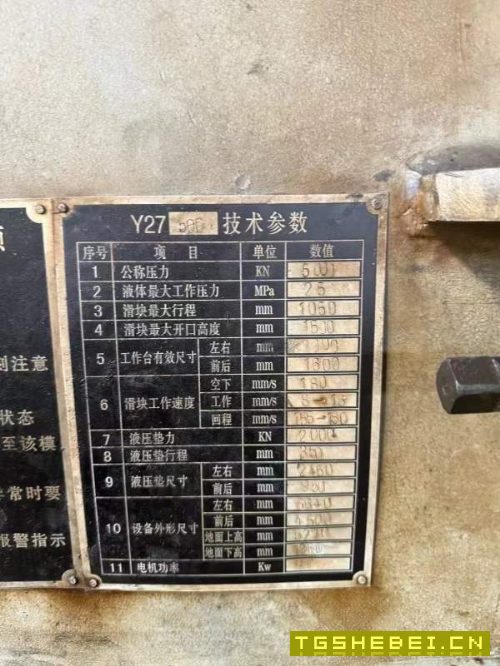 Y27 500 技术参数
序号 项目 单位 数值
1 公称压力 KN 5000
2 液体最大工作压力 MPa 25
3 滑块最大行程 mm 1050
4 滑块最大开口高度 mm 1500
5 工作台有效尺寸 左右 mm
前后 mm 1600
6 滑块工作速度 空下 mm/s 180
工作 mm/s
回程 mm/s
7 液压垫力 KN 2000
8 液压垫行程 mm 350
9 液压垫尺寸 左右 mm 2480
前后 mm
10 设备外形尺寸 左右 mm
前后 mm
地面上高 mm
地面下高 mm
11 电机功率 Kw
到注意
状态
至该模
异常时要
报警指示
TGSHEBEI.CN